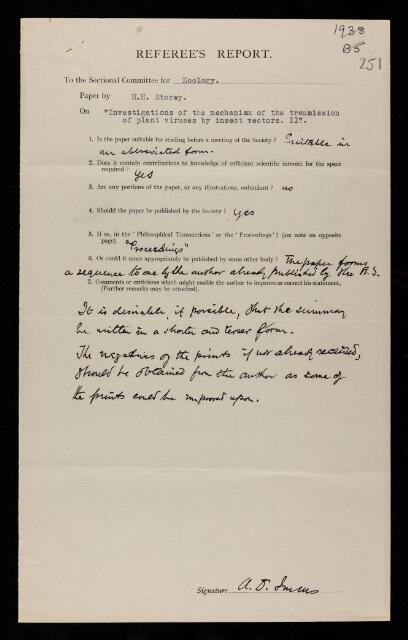 1938
B5
251
REFEREE'S REPORT.
To the Sectional Committee for Zoology.
Paper by H.H. Storey.
On "Investigations of the mechanism of the tranmission
of plant viruses by insect vectors. II".
1. Is the paper suitable for reading before a meeting of the Society? Suitable in
an abbreviated form.
2. Does it contain contributions to knowledge of sufficient scientific interest for the space
required? Yes
3. Are any portions of the paper, or any illustrations, redundant? no
4. Should the paper be published by the Society? yes
5. If so, in the 'Philosophical Transactions' or the 'Proceedings'? (see note on opposite
page). "Proceedings"
6. Or could it more appropriately be published by some other body? The paper forms
a sequence to one by the author already published by the R.S.
7. Comments or criticisms which might enable the author to improve or correct his statement.
(Further remarks may be attached).
It is desirable, if possible, that the summary
be written in a shorter and terser form.
The negatives of the prints if not already received,
should be obtained from the author as some of
the prints could be improved upon.
Signature A. D. Imms